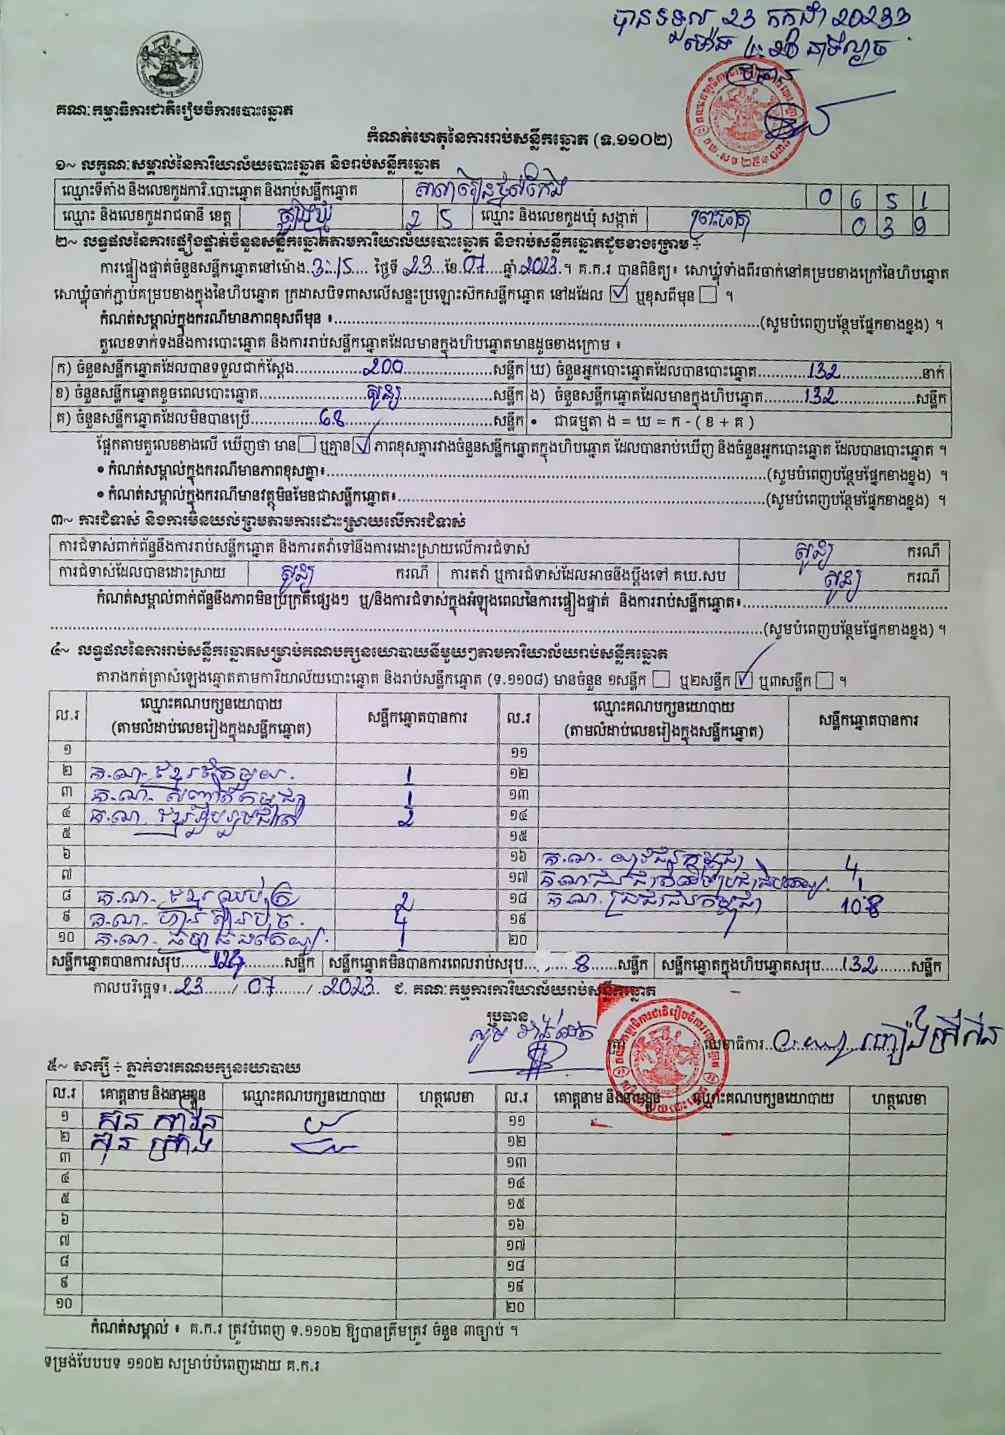 បានទទួល 23 កក្កដា 2023
ម៉ោង
ប្រធាន
គណៈកម្មាធិការជាតិរៀបចំការបោះឆ្នោត
កំណត់ហេតុនៃការរាប់សន្លឹកឆ្នោត (ទ.១១០២)
១~ លក្ខណៈសម្គាល់នៃការិយាល័យបោះឆ្នោត និងរាប់សន្លឹកឆ្នោត
ឈ្មោះទីតាំង និងលេខកូដការិ.បោះឆ្នោត និងរាប់សន្លឹកឆ្នោត 0 6 5 1
ឈ្មោះ និងលេខកូដរាជធានី ខេត្ត ត្បូងឃ្មុំ 2 5 ឈ្មោះ និងលេខកូដឃុំ សង្កាត់ 0 3 9
២~ លទ្ធផលនៃការផ្ទៀងផ្ទាត់ចំនួនសន្លឹកឆ្នោតតាមការិយាល័យបោះឆ្នោត និងរាប់សន្លឹកឆ្នោតដូចខាងក្រោម ÷
ការផ្ទៀងផ្ទាត់ចំនួនសន្លឹកឆ្នោតនៅម៉ោង 3:15 ថ្ងៃទី 23 ខែ 07 ឆ្នាំ 2023 ។ គ.ក.រ បានពិនិត្យ៖ សោឃ្លុំទាំងពីរចាក់នៅគម្របខាងក្រៅនៃហិបឆ្នោត
សោឃ្លុំចាក់ភ្ជាប់គម្របខាងក្នុងនៃហិបឆ្នោត ក្រដាសបិទពាសលើសន្ទះប្រឡោះស៊កសន្លឹកឆ្នោត នៅដដែល ☑ ឬខុសពីមុន ☐ ។
កំណត់សម្គាល់ក្នុងករណីមានភាពខុសពីមុន ៖ (សូមបំពេញបន្ថែមផ្នែកខាងខ្នង) ។
តួលេខទាក់ទងនឹងការបោះឆ្នោត និងការរាប់សន្លឹកឆ្នោតដែលមានក្នុងហិបឆ្នោតមានដូចខាងក្រោម ៖
ក) ចំនួនសន្លឹកឆ្នោតដែលបានទទួលជាក់ស្តែង 200 សន្លឹក ឃ) ចំនួនអ្នកបោះឆ្នោតដែលបានបោះឆ្នោត 132 នាក់
ខ) ចំនួនសន្លឹកឆ្នោតខូចពេលបោះឆ្នោត សូន្យ សន្លឹក ង) ចំនួនសន្លឹកឆ្នោតដែលមានក្នុងហិបឆ្នោត 132 សន្លឹក
គ) ចំនួនសន្លឹកឆ្នោតដែលមិនបានប្រើ 68 សន្លឹក • ជាធម្មតា ង = ឃ = ក - ( ខ + គ )
ផ្អែកតាមតួលេខខាងលើ ឃើញថា មាន ☐ ឬគ្មាន ☑ ភាពខុសគ្នារវាងចំនួនសន្លឹកឆ្នោតក្នុងហិបឆ្នោត ដែលបានរាប់ឃើញ និងចំនួនអ្នកបោះឆ្នោត ដែលបានបោះឆ្នោត ។
• កំណត់សម្គាល់ក្នុងករណីមានភាពខុសគ្នា៖ (សូមបំពេញបន្ថែមផ្នែកខាងខ្នង) ។
• កំណត់សម្គាល់ក្នុងករណីមានវត្ថុមិនមែនជាសន្លឹកឆ្នោត៖ (សូមបំពេញបន្ថែមផ្នែកខាងខ្នង) ។
៣~ ការជំទាស់ និងការមិនយល់ព្រមតាមការដោះស្រាយលើការជំទាស់
ការជំទាស់ពាក់ព័ន្ធនឹងការរាប់សន្លឹកឆ្នោត និងការតវ៉ាទៅនឹងការដោះស្រាយលើការជំទាស់ សូន្យ ករណី
ការជំទាស់ដែលបានដោះស្រាយ សូន្យ ករណី ការតវ៉ា ឬការជំទាស់ដែលអាចនឹងប្តឹងទៅ គឃ.សប សូន្យ ករណី
កំណត់សម្គាល់ពាក់ព័ន្ធនឹងភាពមិនប្រក្រតីផ្សេងៗ ឬ/និងការជំទាស់ក្នុងអំឡុងពេលនៃការផ្ទៀងផ្ទាត់ និងការរាប់សន្លឹកឆ្នោត៖
(សូមបំពេញបន្ថែមផ្នែកខាងខ្នង) ។
៤~ លទ្ធផលនៃការរាប់សន្លឹកឆ្នោតសម្រាប់គណបក្សនយោបាយនីមួយៗតាមការិយាល័យរាប់សន្លឹកឆ្នោត
តារាងកត់ត្រាសំឡេងឆ្នោតតាមការិយាល័យបោះឆ្នោត និងរាប់សន្លឹកឆ្នោត (ទ.១១០៨) មានចំនួន ១សន្លឹក ☐ ឬ២សន្លឹក ☑ ឬ៣សន្លឹក ☐ ។
ល.រ ឈ្មោះគណបក្សនយោបាយ (តាមលំដាប់លេខរៀងក្នុងសន្លឹកឆ្នោត) សន្លឹកឆ្នោតបានការ ល.រ ឈ្មោះគណបក្សនយោបាយ (តាមលំដាប់លេខរៀងក្នុងសន្លឹកឆ្នោត) សន្លឹកឆ្នោតបានការ
១ ១១
២ គ.ណ. ខ្មែរតែមួយ 1 ១២
៣ គ.ណ. សញ្ជាតិកម្ពុជា 1 ១៣
៤ គ.ណ. ខ្មែររួបរួមជាតិ 2 ១៤
៥ ១៥
៦ ១៦ គ.ណ. យុវជនកម្ពុជា 4
៧ ១៧ 1
៨ គ.ណ. ខ្មែរឈប់ក្រ 2 ១៨ គ.ណ. ប្រជាជនកម្ពុជា 108
៩ គ.ណ. ហ៊្វុនស៊ិនប៉ិច ១៩
១០ 1 ២០
សន្លឹកឆ្នោតបានការសរុប 124 សន្លឹក សន្លឹកឆ្នោតមិនបានការពេលរាប់សរុប 8 សន្លឹក សន្លឹកឆ្នោតក្នុងហិបឆ្នោតសរុប 132 សន្លឹក
កាលបរិច្ឆេទ៖ 23 / 07 / 2023 ជ. គណៈកម្មការការិយាល័យរាប់សន្លឹកឆ្នោត
ប្រធាន
លេខាធិការ
៥~ សាក្សី ÷ ភ្នាក់ងារគណបក្សនយោបាយ
ល.រ គោត្តនាម និងនាមខ្លួន ឈ្មោះគណបក្សនយោបាយ ហត្ថលេខា ល.រ គោត្តនាម និងនាមខ្លួន ឈ្មោះគណបក្សនយោបាយ ហត្ថលេខា
១ ១១
២ ១២
៣ ១៣
៤ ១៤
៥ ១៥
៦ ១៦
៧ ១៧
៨ ១៨
៩ ១៩
១០ ២០
កំណត់សម្គាល់ ៖ គ.ក.រ ត្រូវបំពេញ ទ.១១០២ ឱ្យបានត្រឹមត្រូវ ចំនួន ៣ច្បាប់ ។
ទម្រង់បែបបទ ១១០២ សម្រាប់បំពេញដោយ គ.ក.រ